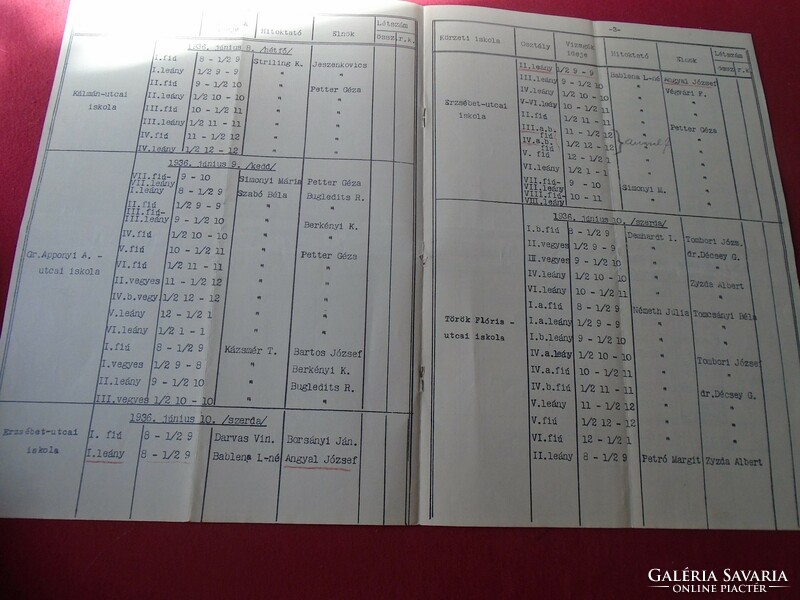 Hitoktató Elnök Létszám
össz. r.k.
1936. június 8. /hétfő/
Kálmán-utcai
iskola
I.fid 8 - 1/2 9 Striling K. Jeszenkovics
I.leány 1/2 9 - 9 " "
II.fid 9 - 1/2 10 " Petter Géza
II.leány 1/2 10 - 10 " "
III.fid 10 - 1/2 11 " "
III.leány 1/2 11 - 11 " "
IV.fid 11 - 1/2 12 " "
IV.leány 1/2 12 - 12 " "
1936. június 9. /kedd/
Gr.Apponyi A. -
utcai iskola
VII.fid- 9 - 10 Simonyi Mária Petter Géza
VII.leány
I.leány 8 - 1/2 9 Szabó Béla Bugledits R.
II.fid 1/2 9 - 9 " "
III.fid-
III.leány 9 - 1/2 10 " Berkényi K.
IV.fid 1/2 10 - 10 " "
V.fid 10 - 1/2 11 " Petter Géza
VI.fid 1/2 11 - 11 " "
II.vegyes 11 - 1/2 12 " "
IV.b.vegy 1/2 12 - 12 " "
V.leány 12 - 1/2 1 " "
VI.leány 1/2 1 - 1 " "
I.fid 8 - 1/2 9 Kázsmér T. Bartos József
I.vegyes 1/2 9 - 8 " Berkényi K.
II.leány 9 - 1/2 10 " Bugledits R.
III.vegyes 1/2 10 - 10 " "
1936. június 10. /szerda/
Erzsébet-utcai
iskola
I. fid 8 - 1/2 9 Darvas Vin. Borsányi Ján.
I.leány 8 - 1/2 9 Bablena L-né Angyal József
-2-
Körzeti iskola Osztály Vizsgák ideje Hitoktató Elnök Létszám
össz. r.k.
Erzsébet-utcai
iskola
II.leány 1/2 9 - 9 Bablena L-né Angyal József
III.leány 9 - 1/2 10 " Végvári F.
IV.leány 1/2 10 - 10 " "
V-VI.leány 10 - 1/2 11 " "
II.fid 1/2 11 - 11 " Petter Géza
III.a.b. fid 11 - 1/2 12 "
IV.a.b. fid 1/2 12 - 12 "
V. fid 12 - 1/2 1 "
VI.leány 1/2 1 - 1 "
VII.fid- 9 - 10 Simonyi M. "
VII.leány
VIII.fid- 10 - 11 " "
VIII.leány
1936. június 10. /szerda/
Török Flóris -
utcai iskola
I.b.fid 8 - 1/2 9 Damhardt I. Tombori Józs.
II.vegyes 1/2 9 - 9 " dr.Décsey G.
III.vegyes 9 - 1/2 10 " "
IV.leány 1/2 10 - 10 " Zyzda Albert
VI.leány 10 - 1/2 11 " "
I.a.fid 8 - 1/2 9 Németh Júlia Tomcsányi Béla
I.a.leány 1/2 9 - 9 " "
I.b.leány 9 - 1/2 10 " "
IV.a.leány 1/2 10 - 10 " Tombori József
IV.a.fid 10 - 1/2 11 " "
IV.b.fid 1/2 11 - 11 " dr.Décsey G.
V.leány 11 - 1/2 12 " "
V.fid 1/2 12 - 12 " "
VI.fid 12 - 1/2 1 " "
II.leány 8 - 1/2 9 Petró Margit Zyzda Albert
GALÉRIA SAVARIA
ONLINE PIACTÉR